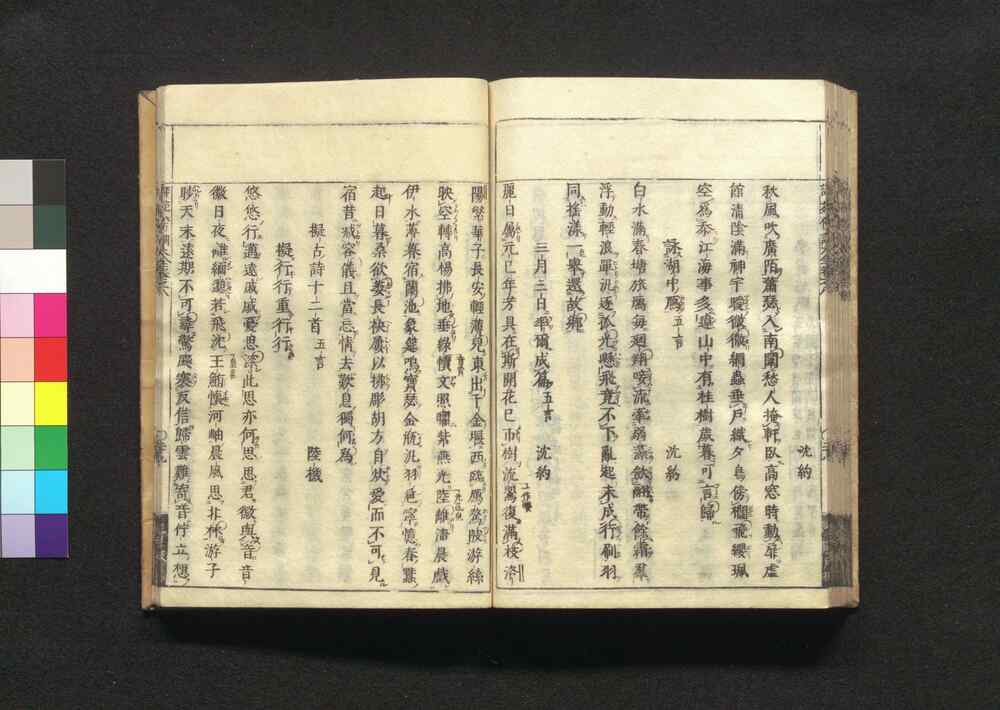 沈約
秋風吹廣陌蕭瑟入南闈愁人掩軒臥高窓時動扉虛
館清陰滿神宇曖微微網蟲垂戶織夕鳥傍櫩飛纓珮
空爲忝江海事多違山中有桂樹歲暮可言歸
詠湖中鴈 五言 沈約
白水滿春塘旅鴈每迴翔唼流牽弱藻斂翮帶餘霜羣
浮動輕浪單汎逐孤光懸飛竟不下亂起未成行刷羽
同搖漾一舉還故鄉
三月三日率爾成篇 五言 沈約
麗日屬元巳年芳具在斯開花已帀樹流鸎復滿枝洛
陽繁華子長安輕薄兒東出千金堰西臨鴈鶩陂游絲
映空轉高楊拂地垂綠幘文照曜紫燕光陸離淸晨戲
伊水薄暮宿蘭池象筵鳴寶瑟金瓶汎羽巵寧憶春蠶
起日暮桑欲萎長袂屢以拂彫胡方自炊愛而不可見
宿昔減容儀且當忘情去歎息獨何爲
擬古詩十二首 五言 陸機
擬行行重行行
悠悠行邁遠戚戚憂思深此思亦何思思君徽與音音
徽日夜離緬邈若飛沈王鮪懷河岫晨風思北林游子
眇天末還期不可尋驚飇褰反信歸雲難寄音佇立想